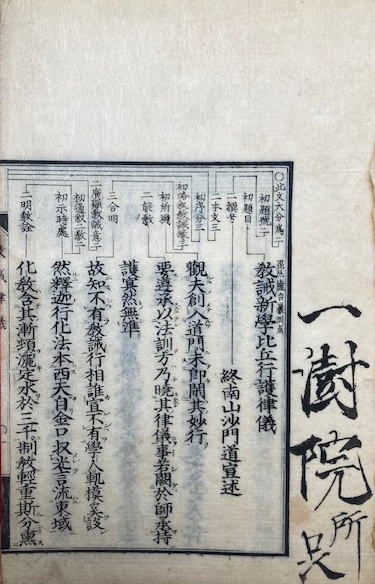 一澍院
所
○此文大分爲二
初題號二
初題目
教誡新學比丘行護律儀
二撰号
終南山沙門道宣述
二本文三
初序分三
觀夫創入道門未即閑其妙行
初略叙教誡意三
初所機
二能教
要尊承以法訓方乃曉其律儀事若闕於師承持
護冥然無準
三合明
故知不有教誡行相誰宣不有學人軌模奚設
二廣顯教誡意二
初通叙二教二
初示時處
然釋迦行化法本西天自金口收光言流東域
二明教詮
化教含其漸頓灑定水於三千制教輕重斯分熏